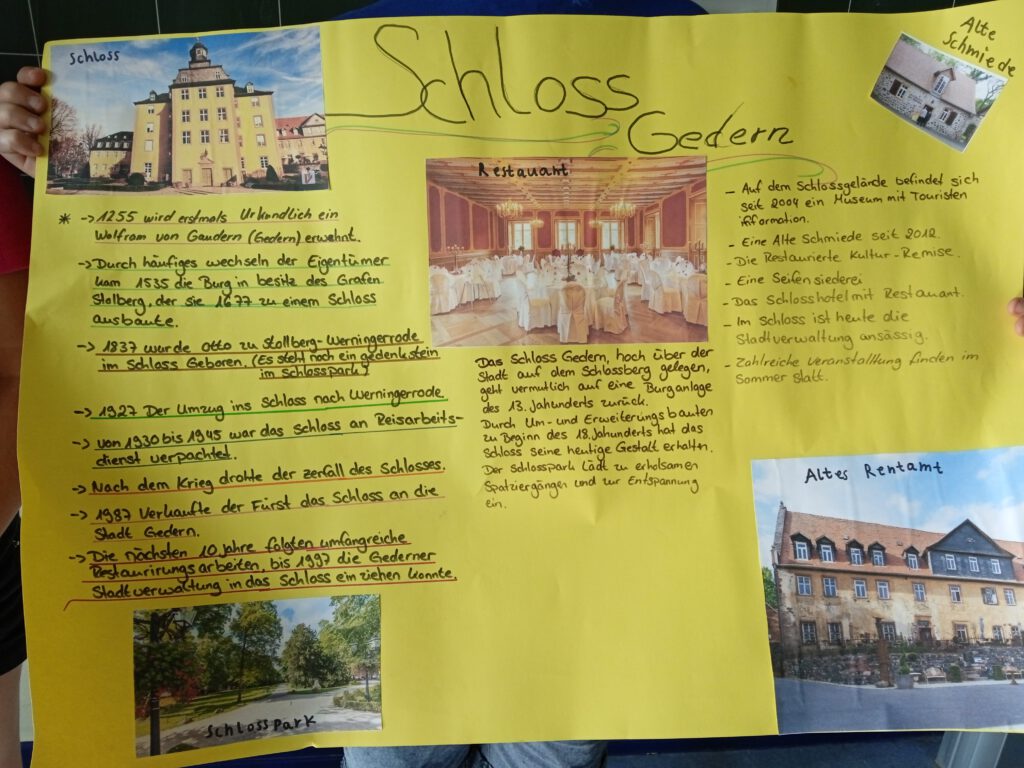 Schloss
Schloss
Gedern
Alte
Schmiede
* -> 1255 wird erstmals Urkundlich ein
Wolfram von Gaudern (Gedern) erwähnt.
-> Durch häufiges wechseln der Eigentümer
kam 1535 die Burg in besitz des Grafen
Stolberg, der sie 1677 zu einem Schloss
ausbaute.
-> 1837 wurde otto zu Stollberg-Werningerrode
im Schloss Geboren, (Es steht noch ein gedenkstein
im Schlosspark)
-> 1927 Der Umzug ins Schloss nach Werningerrode.
-> von 1930 bis 1945 war das Schloss an Reisarbeits-
dienst verpachtet.
-> Nach dem Krieg drohte der zerfall des Schlosses.
-> 1987 Verkaufte der Fürst das Schloss an die
Stadt Gedern.
-> Die nächsten 10 Jahre folgten umfangreiche
Restaurirungsarbeiten, bis 1997 die Gederner
Stadtverwaltung in das Schloss ein ziehen konnte.
Schlosspark
Restauant
Das Schloss Gedern, hoch über der
Stadt auf dem Schlossberg gelegen,
geht vermutlich auf eine Burganlage
des 13. Jahunderts zurück.
Durch Um- und Erweiterungsbauten
zu Beginn des 18. Jahunderts hat das
Schloss seine heutige Gestalt erhalten.
Der Schlosspark Lädt zu erholsamen
Spatziergängen und zur Entspannung
ein.
- Auf dem Schlossgelände befindet sich
seit 2004 ein Museum mit Touristen
information.
- Eine Alte Schmiede seit 2012.
- Die Restaurierte Kultur-Remise.
- Eine Seifensiederei
- Das Schlosshotel mit Restauant.
- Im Schloss ist heute die
Stadtverwaltung ansässig.
- Zahlreiche veranstalltung finden im
Sommer statt.
Altes Rentamt